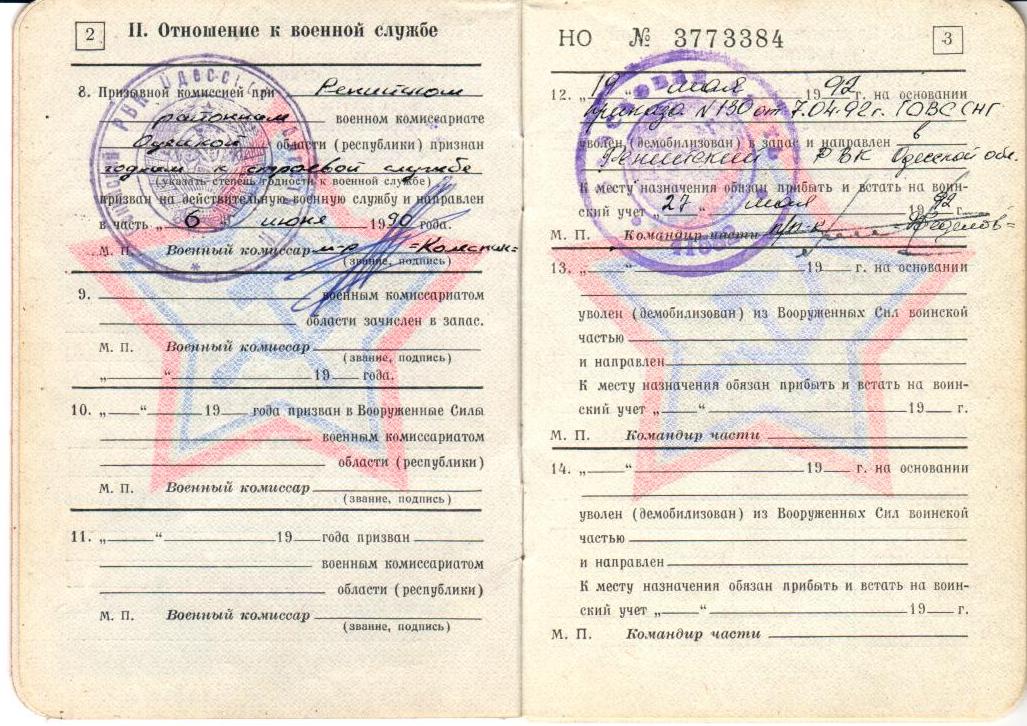 2
II. Отношение к военной службе
8. Призывной комиссией при Ренийском
районном военном комиссариате
Одесской области (республики) признан
годным к строевой службе
(указать степень годности к военной службе)
призван на действительную военную службу и направлен
в часть „ 6 “ июня 1990 года.
М. П. Военный комиссар м-р
(звание, подпись)
9.
военным комиссариатом
области зачислен в запас.
М. П. Военный комиссар
(звание, подпись)
„ “ 19 года.
10. „ “ 19 года призван в Вооруженные Силы
военным комиссариатом
области (республики)
М. П. Военный комиссар
(звание, подпись)
11. „ “ 19 года призван
военным комиссариатом
области (республики)
М. П. Военный комиссар
(звание, подпись)
НО № 3773384
3
12. „19 “ мая 1992 г. на основании
приказа N 130 от 7.04.92г. ГОВС СНГ
уволен (демобилизован) в запас и направлен в
Ренийский РВК Одесской обл.
К месту назначения обязан прибыть и встать на воин-
ский учет „27 “ мая 1992 г.
М. П. Командир части п/п-к
13. „ “ 19 г. на основании
уволен (демобилизован) из Вооруженных Сил воинской
частью
и направлен
К месту назначения обязан прибыть и встать на воин-
ский учет „ “ 19 г.
М. П. Командир части
14. „ “ 19 г. на основании
уволен (демобилизован) из Вооруженных Сил воинской
частью
и направлен
К месту назначения обязан прибыть и встать на воин-
ский учет „ “ 19 г.
М. П. Командир части